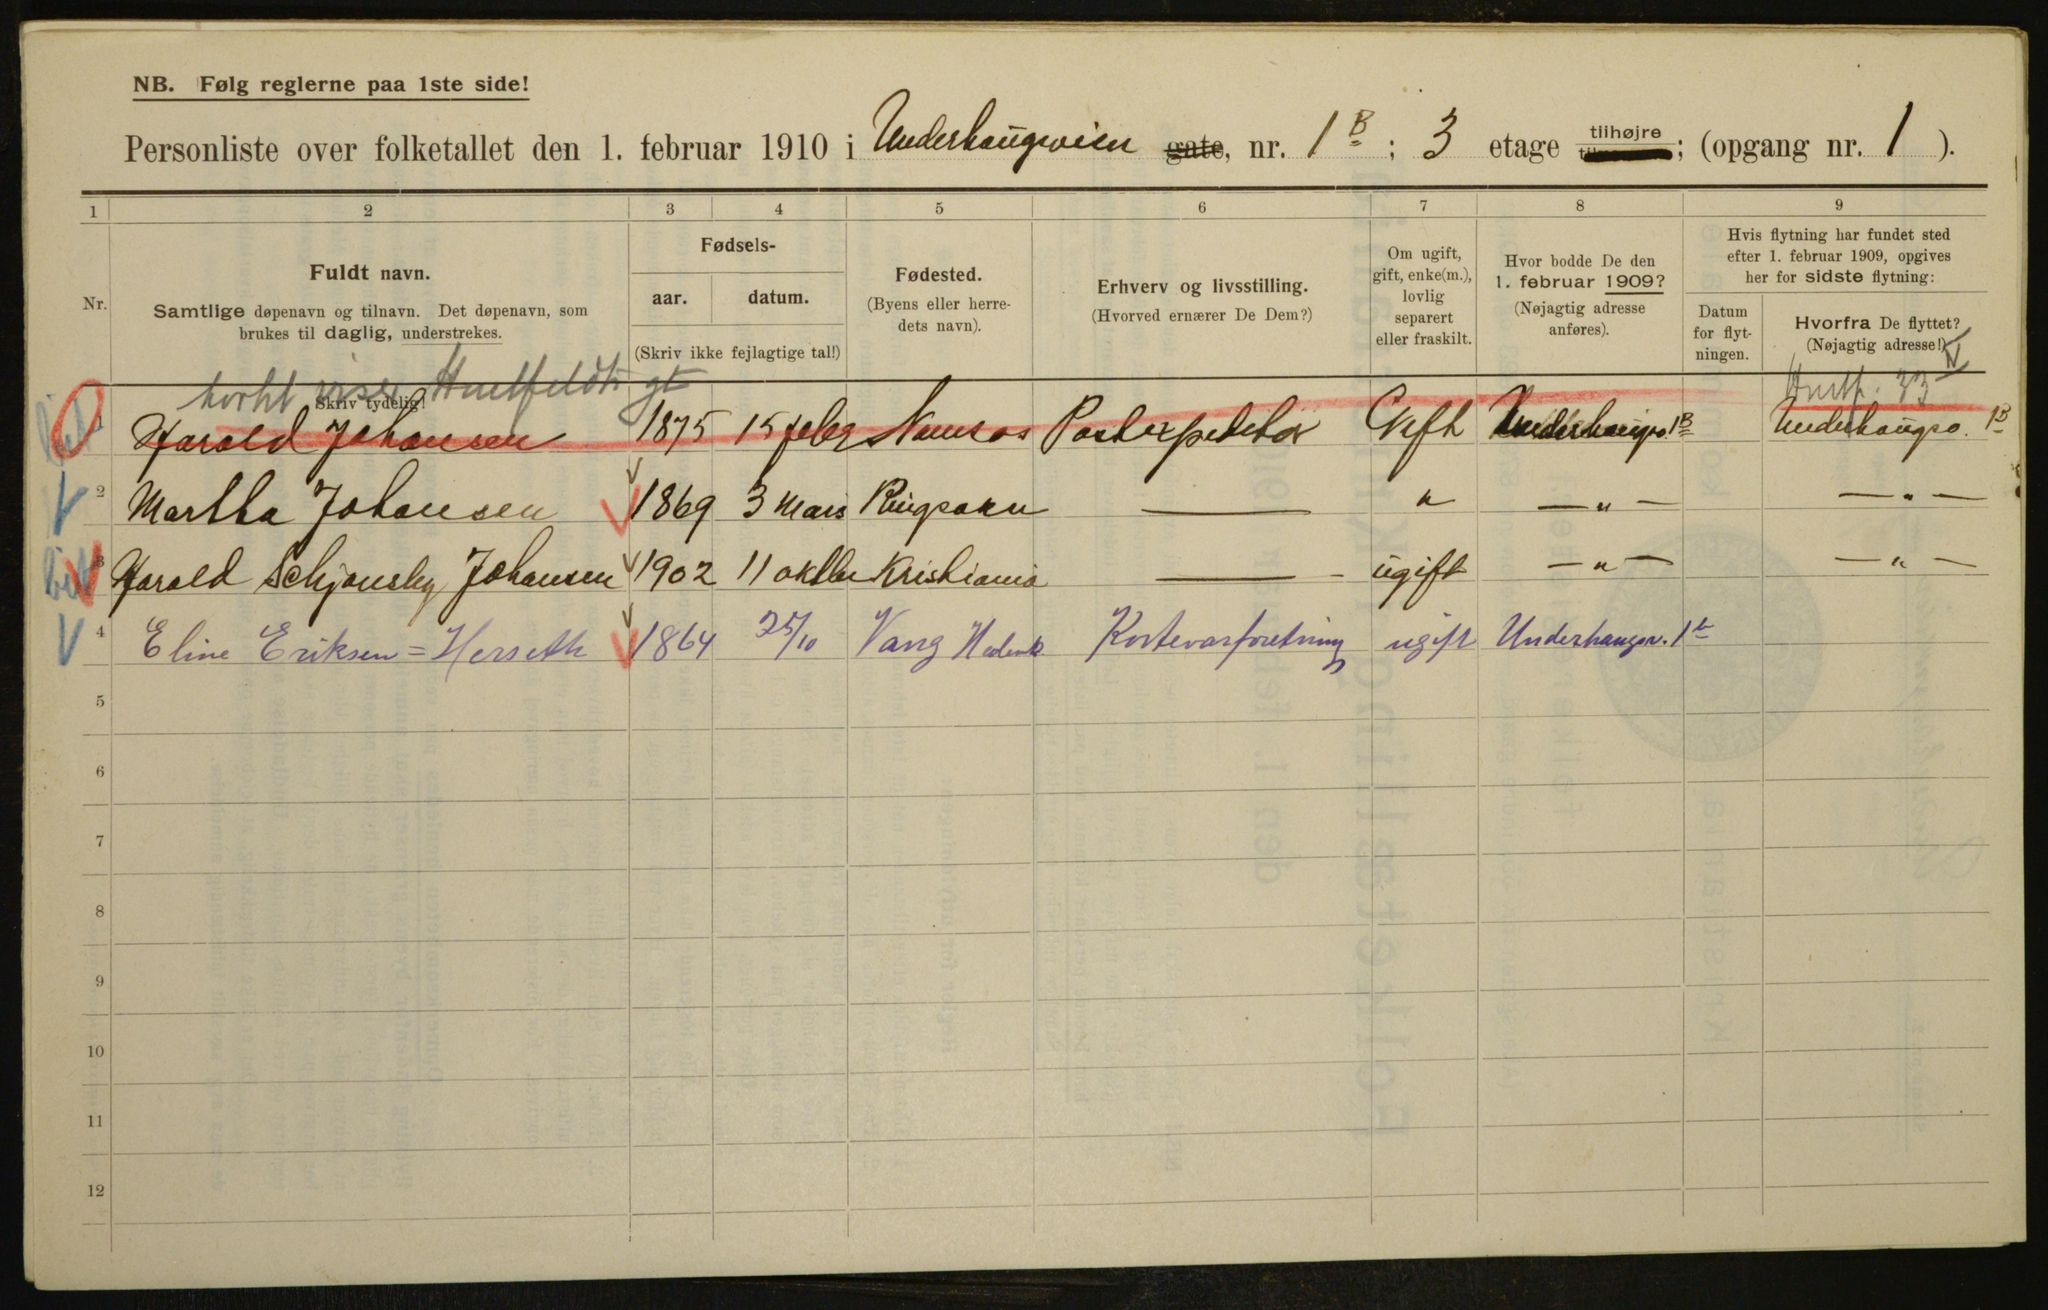 NB. Følg reglerne paa 1ste side!
Personliste over folketallet den 1. februar 1910 i Underhaugsveien gate, nr. 1 B ; 3 etage tilhøjre ; (opgang nr. 1 ).
1 2 3 4 5 6 7 8 9
Nr.
Fuldt navn.
Samtlige døpenavn og tilnavn. Det døpenavn, som
brukes til daglig, understrekes.
Skriv tydelig!
Fødsels-
aar. datum.
(Skriv ikke fejlagtige tal!)
Fødested.
(Byens eller herre-
dets navn).
Erhverv og livsstilling.
(Hvorved ernærer De Dem?)
Om ugift,
gift, enke(m.),
lovlig
separert
eller fraskilt.
Hvor bodde De den
1. februar 1909?
(Nøjagtig adresse
anføres).
Hvis flytning har fundet sted
efter 1. februar 1909, opgives
her for sidste flytning:
Datum
for flyt-
ningen.
Hvorfra De flyttet?
(Nøjagtig adresse!)
Huitfeldts gt
Huitf. 33 IV
1 Harald Johansen 1875 15 febr Namsos Postexpeditør Gift Underhaugsv. 1B Underhaugsv. 1B
2 Martha Johansen 1869 3 Mars Ringsaker — " — " — — " —
3 Harald Schjønsby Johansen 1902 11 oktbr Kristiania — ugift — " — — " —
4 Eline Eriksen = Herseth 1864 25/10 Vang Hedem. Kortevareforretning ugift Underhaugsv. 1b
5
6
7
8
9
10
11
12